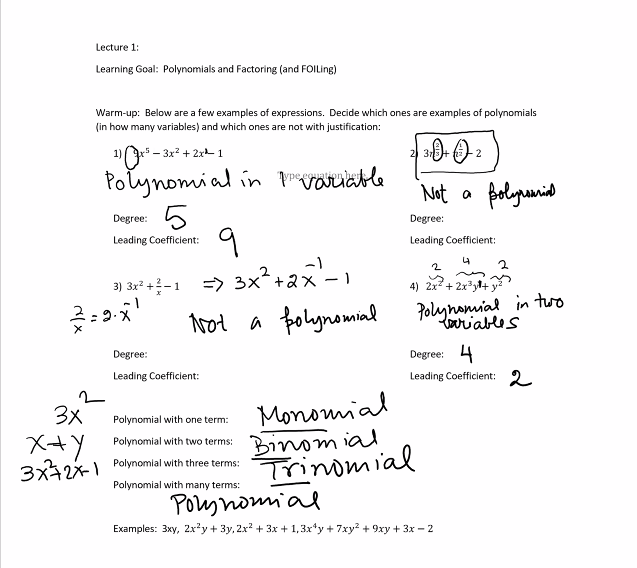 Lecture 1:
Learning Goal: Polynomials and Factoring (and FOILing)
Warm-up: Below are a few examples of expressions. Decide which ones are examples of polynomials
(in how many variables) and which ones are not with justification:
1) 9x⁵ − 3x² + 2x¹ − 1
Polynomial in 1 variable
Type equation here.
2) − 2
Not a polynomial
Degree: 5
Leading Coefficient: 9
Degree:
Leading Coefficient:
3) 3x² + 2/x − 1 ⇒ 3x² + 2x⁻¹ − 1
2/x = 2·x⁻¹
Not a polynomial
2 4 2
4) 2x² + 2x³y¹ + y²
Polynomial in two
variables
Degree:
Leading Coefficient:
Degree: 4
Leading Coefficient: 2
3x²
Polynomial with one term: Monomial
x+y
Polynomial with two terms: Binomial
3x²+2x-1
Polynomial with three terms: Trinomial
Polynomial with many terms:
Polynomial
Examples: 3xy, 2x²y + 3y, 2x² + 3x + 1, 3x⁴y + 7xy² + 9xy + 3x − 2